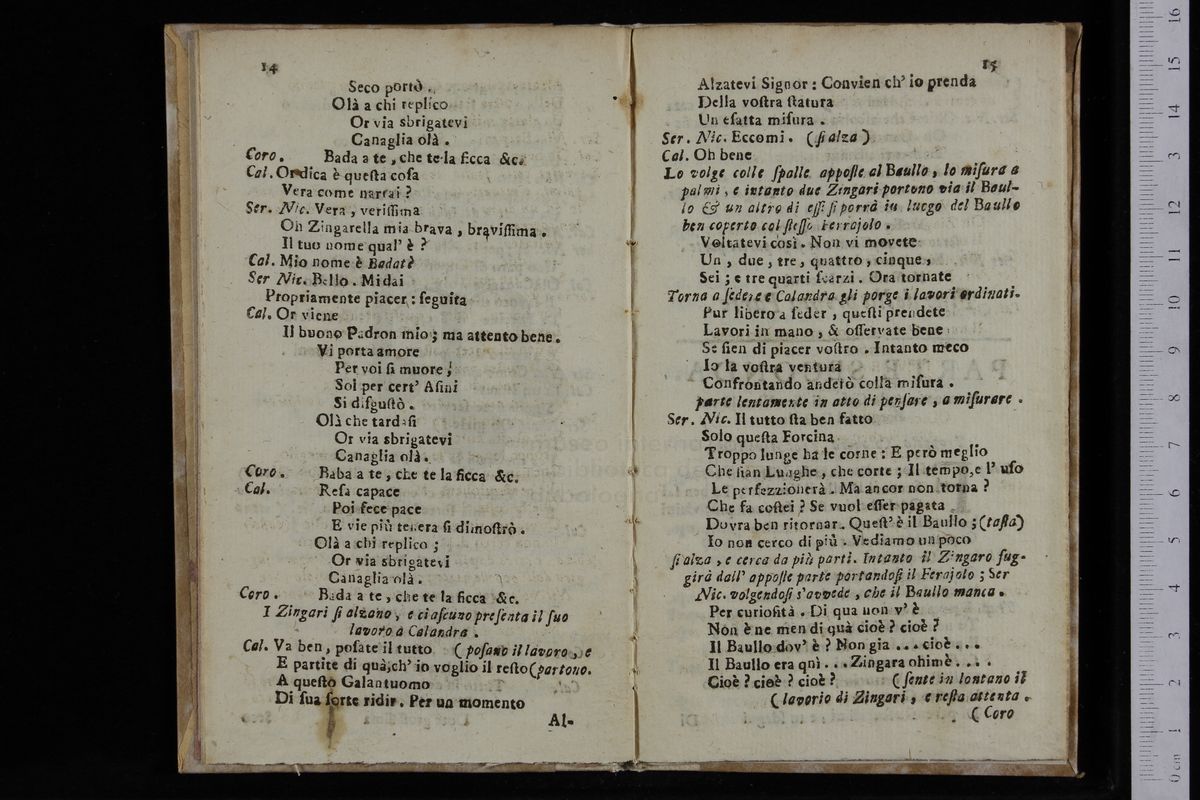 14
Seco portò .
Olà a chi replico
Or via sbrigatevi
Canaglia olà .
Coro . Bada a te , che te la ficca &c.
Cal. Or dica è queſta coſa
Vera come narrai ?
Ser. Nic. Vera , veriſſima
Oh Zingarella mia brava , braviſſima .
Il tuo nome qual' è ?
Cal. Mio nome è Badatè
Ser Nic. Bello . Mi dai
Propriamente piacer : ſeguita
Cal. Or viene
Il buono Padron mio ; ma attento bene .
Vi porta amore
Per voi ſi muore ;
Sol per cert' Aſini
Si diſguſtò .
Olà che tardaſi
Or via sbrigatevi
Canaglia olà .
Coro . Baba a te , che te la ficca &c.
Cal. Reſa capace
Poi fece pace
E vie più tenera ſi dimoſtrò .
Olà a chi replico ;
Or via sbrigatevi
Canaglia olà .
Coro . Bada a te , che te la ficca &c.
I Zingari ſi alzano , e ciaſcuno preſenta il ſuo
lavoro a Calandra .
Cal. Va ben , poſate il tutto ( poſano il lavoro , e
E partite di quà, ch' io voglio il reſto ( partono.
A queſto Galantuomo
Di ſua ſorte ridir . Per un momento
Al-
15
Alzatevi Signor : Convien ch' io prenda
Della voſtra ſtatura
Un eſatta miſura .
Ser. Nic. Eccomi . ( ſi alza )
Cal. Oh bene
Lo volge colle ſpalle appoſte al Baullo , lo miſura a
palmi , e intanto due Zingari portono via il Baul-
lo & un altro di eſſi ſi porrà in luogo del Baullo
ben coperto col ſteſſo Ferrajolo .
Voltatevi così . Non vi movete
Un , due , tre , quattro , cinque ,
Sei ; e tre quarti ſcarzi . Ora tornate
Torna a ſedere e Calandra gli porge i lavori ordinati.
Pur libero a ſeder , queſti prendete
Lavori in mano , & oſſervate bene
Se ſien di piacer voſtro . Intanto meco
Io la voſtra ventura
Confrontando anderò colla miſura .
parte lentamente in atto di penſare , a miſurare .
Ser. Nic. Il tutto ſta ben fatto
Solo queſta Forcina
Troppo lunge ha le corne : E però meglio
Che ſian Lunghe , che corte ; Il tempo, e l' uſo
Le perfezzionerà . Ma ancor non torna ?
Che fa coſtei ? Se vuol eſſer pagata
Dovra ben ritornar . Queſt' è il Baullo ; (taſta)
Io non cerco di più . Vediamo un poco
ſi alza , e cerca da più parti. Intanto il Zingaro fug-
girà dall' appoſte parte portandoſi il Ferajolo ; Ser
Nic. volgendoſi s'avvede , che il Baullo manca .
Per curioſità . Di qua non v' è
Non è ne men di quà cioè ? cioè ?
Il Baullo dov' è ? Non gia . . . cioè . . .
Il Baullo era quì . . . Zingara ohimè . . . .
Cioè ? cioè ? cioè ? ( ſente in lontano il
( lavorio di Zingari , e reſta attenta .
( Coro